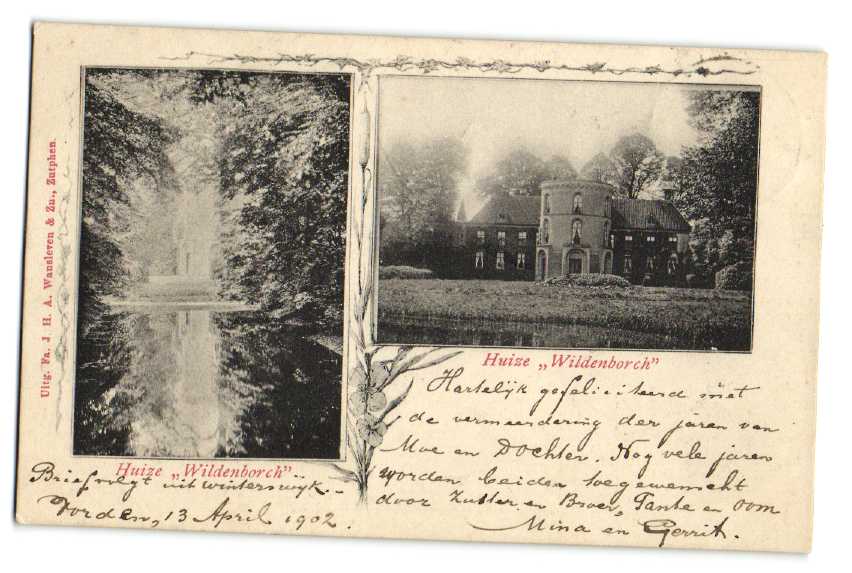 Uitg. Fa. J. H. A. Wansleven & Zn., Zutphen.
Huize „Wildenborch”
Huize „Wildenborch”
Hartelijk gefeliciteerd met
de vermeerdering der jaren van
Moe en Dochter. Nog vele jaren
worden beiden toegewenscht
door Zuster en Broer, Tante en oom
Mina en Gerrit.
Brief volgt uit winterswijk.
Vorden, 13 April 1902.